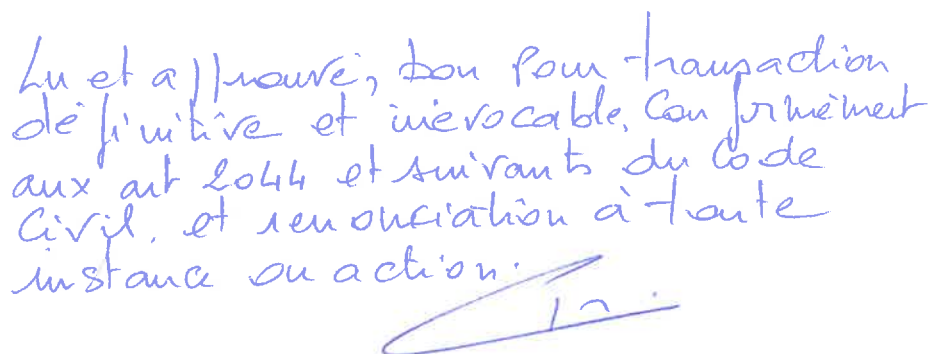 Lu et approuvé, bon pour transaction
définitive et irrévocable, Conformément
aux art 2044 et suivants du Code
Civil, et renonciation à toute
instance ou action.